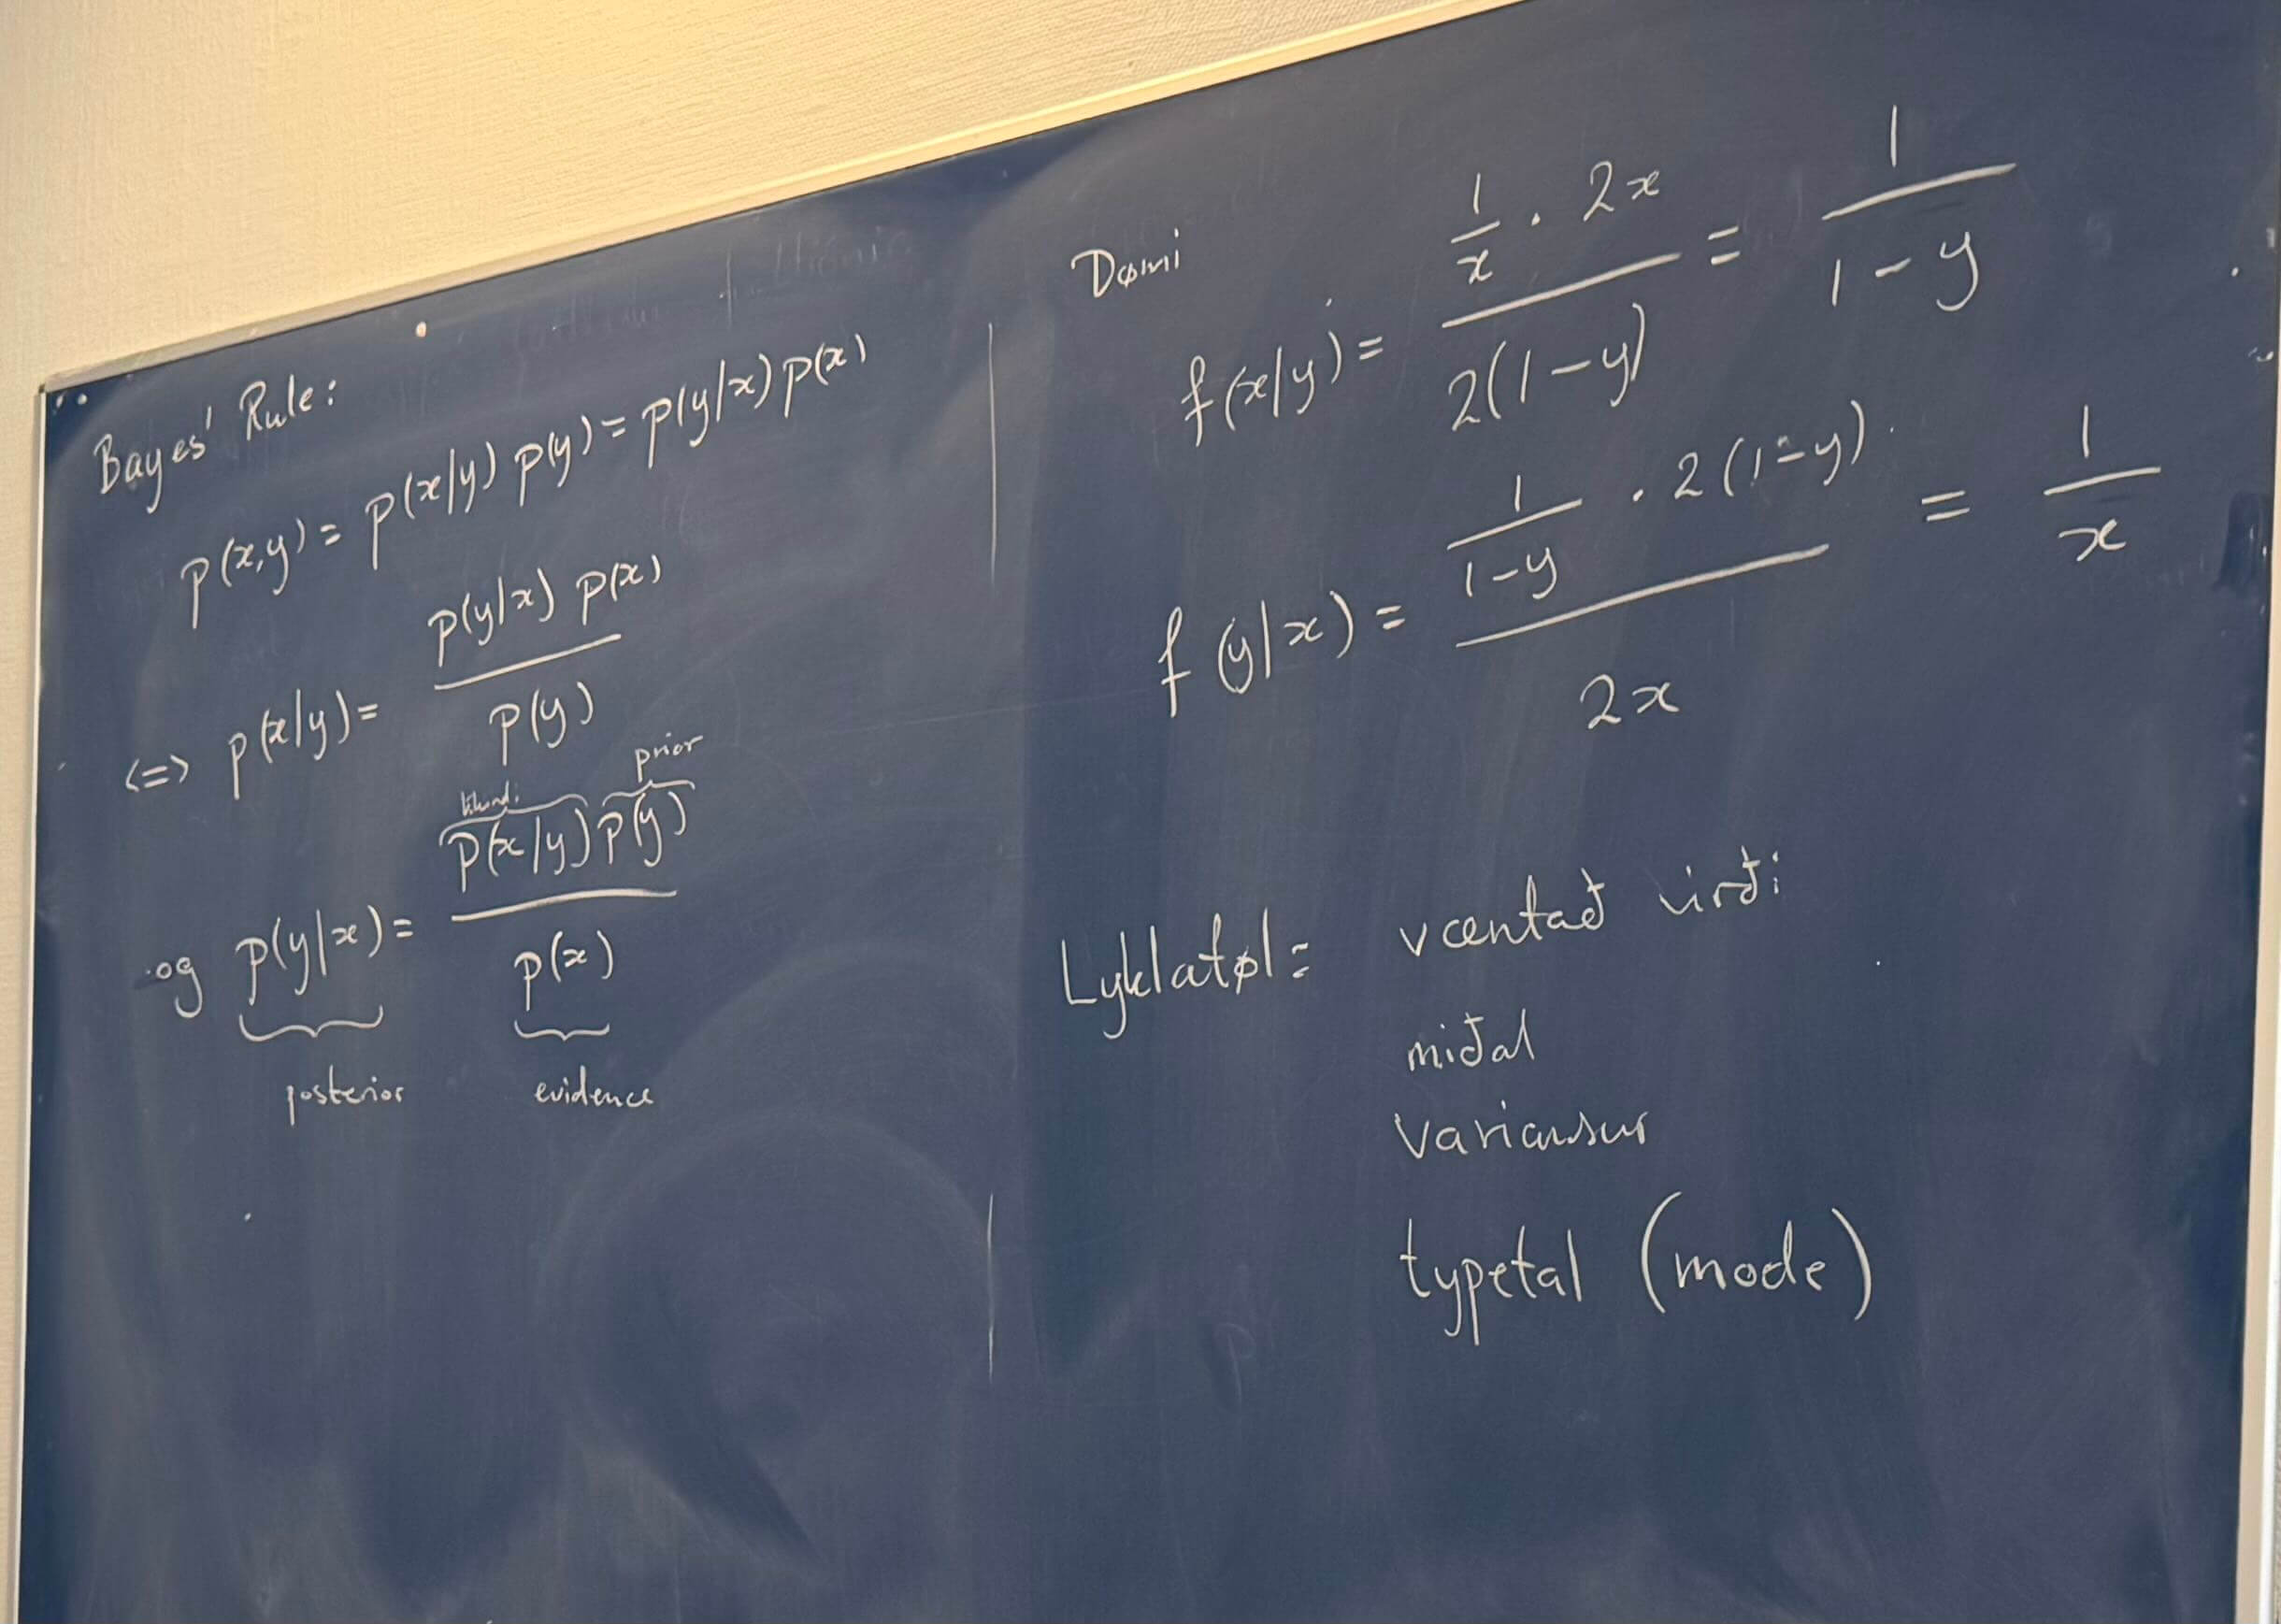 Bayes' Rule:
p(x,y) = p(x|y) p(y) = p(y|x) p(x)
<=> p(x|y) = p(y|x) p(x) / p(y)
prior
og p(y|x) = p(x|y) p(y) / p(x)
posterior evidence
Dømi
f(x|y) = (1/x · 2x) / 2(1-y) = 1 / (1-y)
f(y|x) = (1/(1-y) · 2(1-y)) / 2x = 1/x
Lyklatøl: væntað virði
miðal
variansur
typetal (mode)